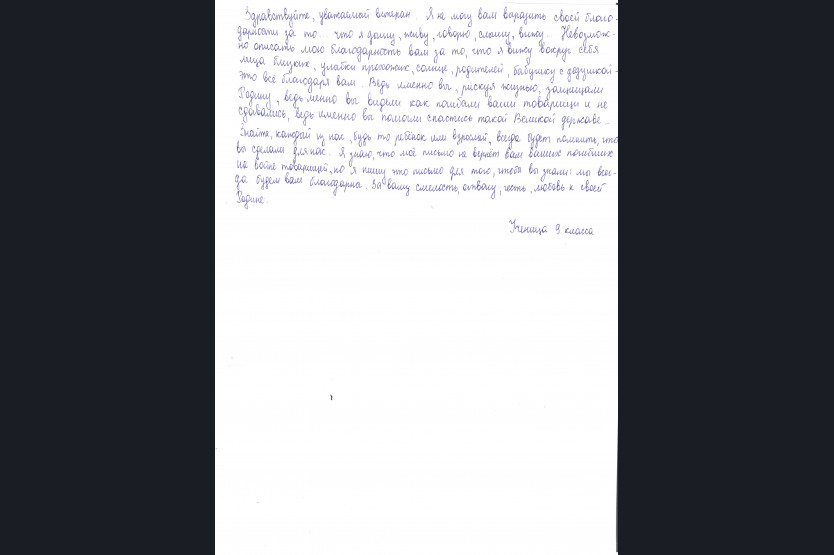 Здравствуйте, уважаемый ветеран. Я не могу вам выразить своей благо-
дарности за то... что я дышу, живу, говорю, слышу, вижу... Невозмож-
но описать мою благодарность вам за то, что я вижу вокруг себя
лица близких, улыбки прохожих, солнце, родителей, бабушку с дедушкой -
это всё благодаря вам. Ведь именно вы, рискуя жизнью, защищали
Родину, ведь именно вы видели как погибали ваши товарищи и не
сдавались, ведь именно вы помогли спастись такой Великой державе...
Знайте, каждый из нас, будь то ребёнок или взрослый, всегда будет помнить, что
вы сделали для нас. Я знаю, что моё письмо не вернёт вам ваших погибших
на войне товарищей, но я пишу это письмо для того, чтобы вы знали: мы всег-
да будем вам благодарны. За вашу смелость, отвагу, честь, любовь к своей
Родине.
Ученица 9 класса
1